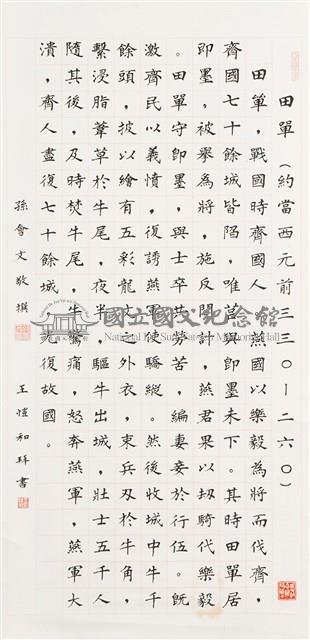 田單(約當西元前三三〇—二六〇)
田單,戰國時齊人。燕國以樂毅為將而伐齊,
齊國七十餘城皆陷,唯莒與即墨未下。其時田單居
即墨,被舉為將,施反間計,燕君果以劫騎代樂毅
。田單守即墨,與士卒共勞苦,編妻妾於行伍。既
激齊民以義憤,復誘燕軍使驕縱。然後收城中牛千
餘頭,披以繪有五彩龍文之外衣,束兵刃於牛角,
繫浸脂葦草於牛尾,夜半,驅牛出城,壯士五千人
隨其後,及時焚牛尾,牛驚痛,怒奔燕軍,燕軍大
潰,齊人盡復七十餘城,復故國。
孫會文敬撰
王愷和拜書
國立國父紀念館
National Dr. Sun Yat-sen Memorial Hall